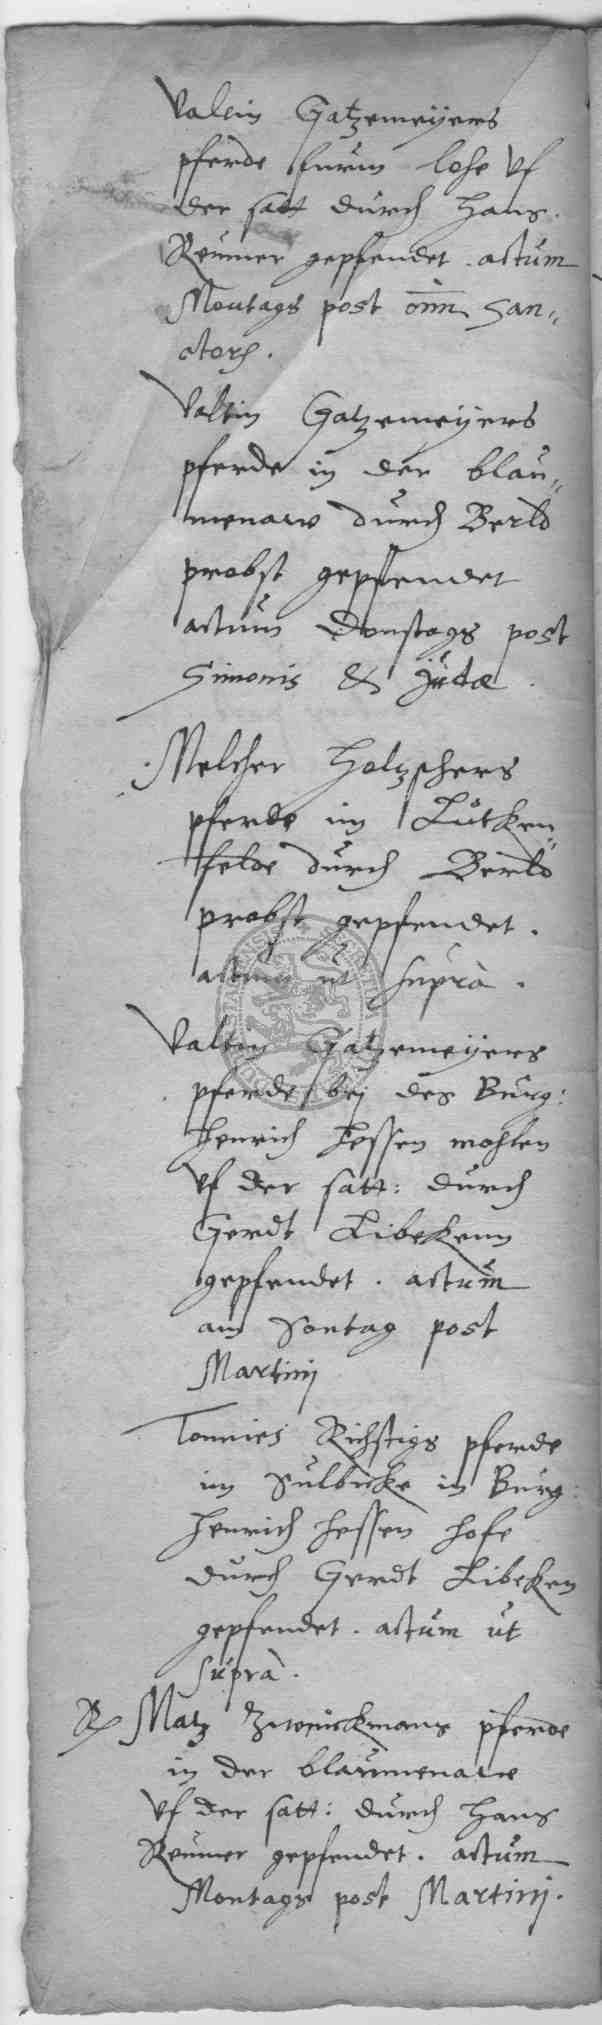 Valtin Gatzemeyers
pferde furm lohe uf
der satt durch Hans
Reumer gepfendet. actum
Montags post oim San„
ctorũ.
Valtin Gatzemeyers
pferde in der blau„
menaw durch Berld
probst gepfendet
actum Donstags post
Simonis & Judæ.
Melcher Holtzschers
pferde im Lutken„
felde durch Berld
probst gepfendet.
actum ut supra.
Valtin Gatzemeyers
pferde bej des Burg:
Henrich Hessen mohlen
uf der satt: durch
Gerdt Libekenn
gepfendet. actum
am Sontag post
Martinj
Tonnies Richstigs pferde
im Sulbicke in Burg:
Henrich Hessen hofe
durch Gerdt Libeken
gepfendet. actum ut
supra.
Matz Zwenickmans pferde
in der blaumenawe
uf der satt: durch Hans
Reumer gepfendet. actum
Montags post Martinj.